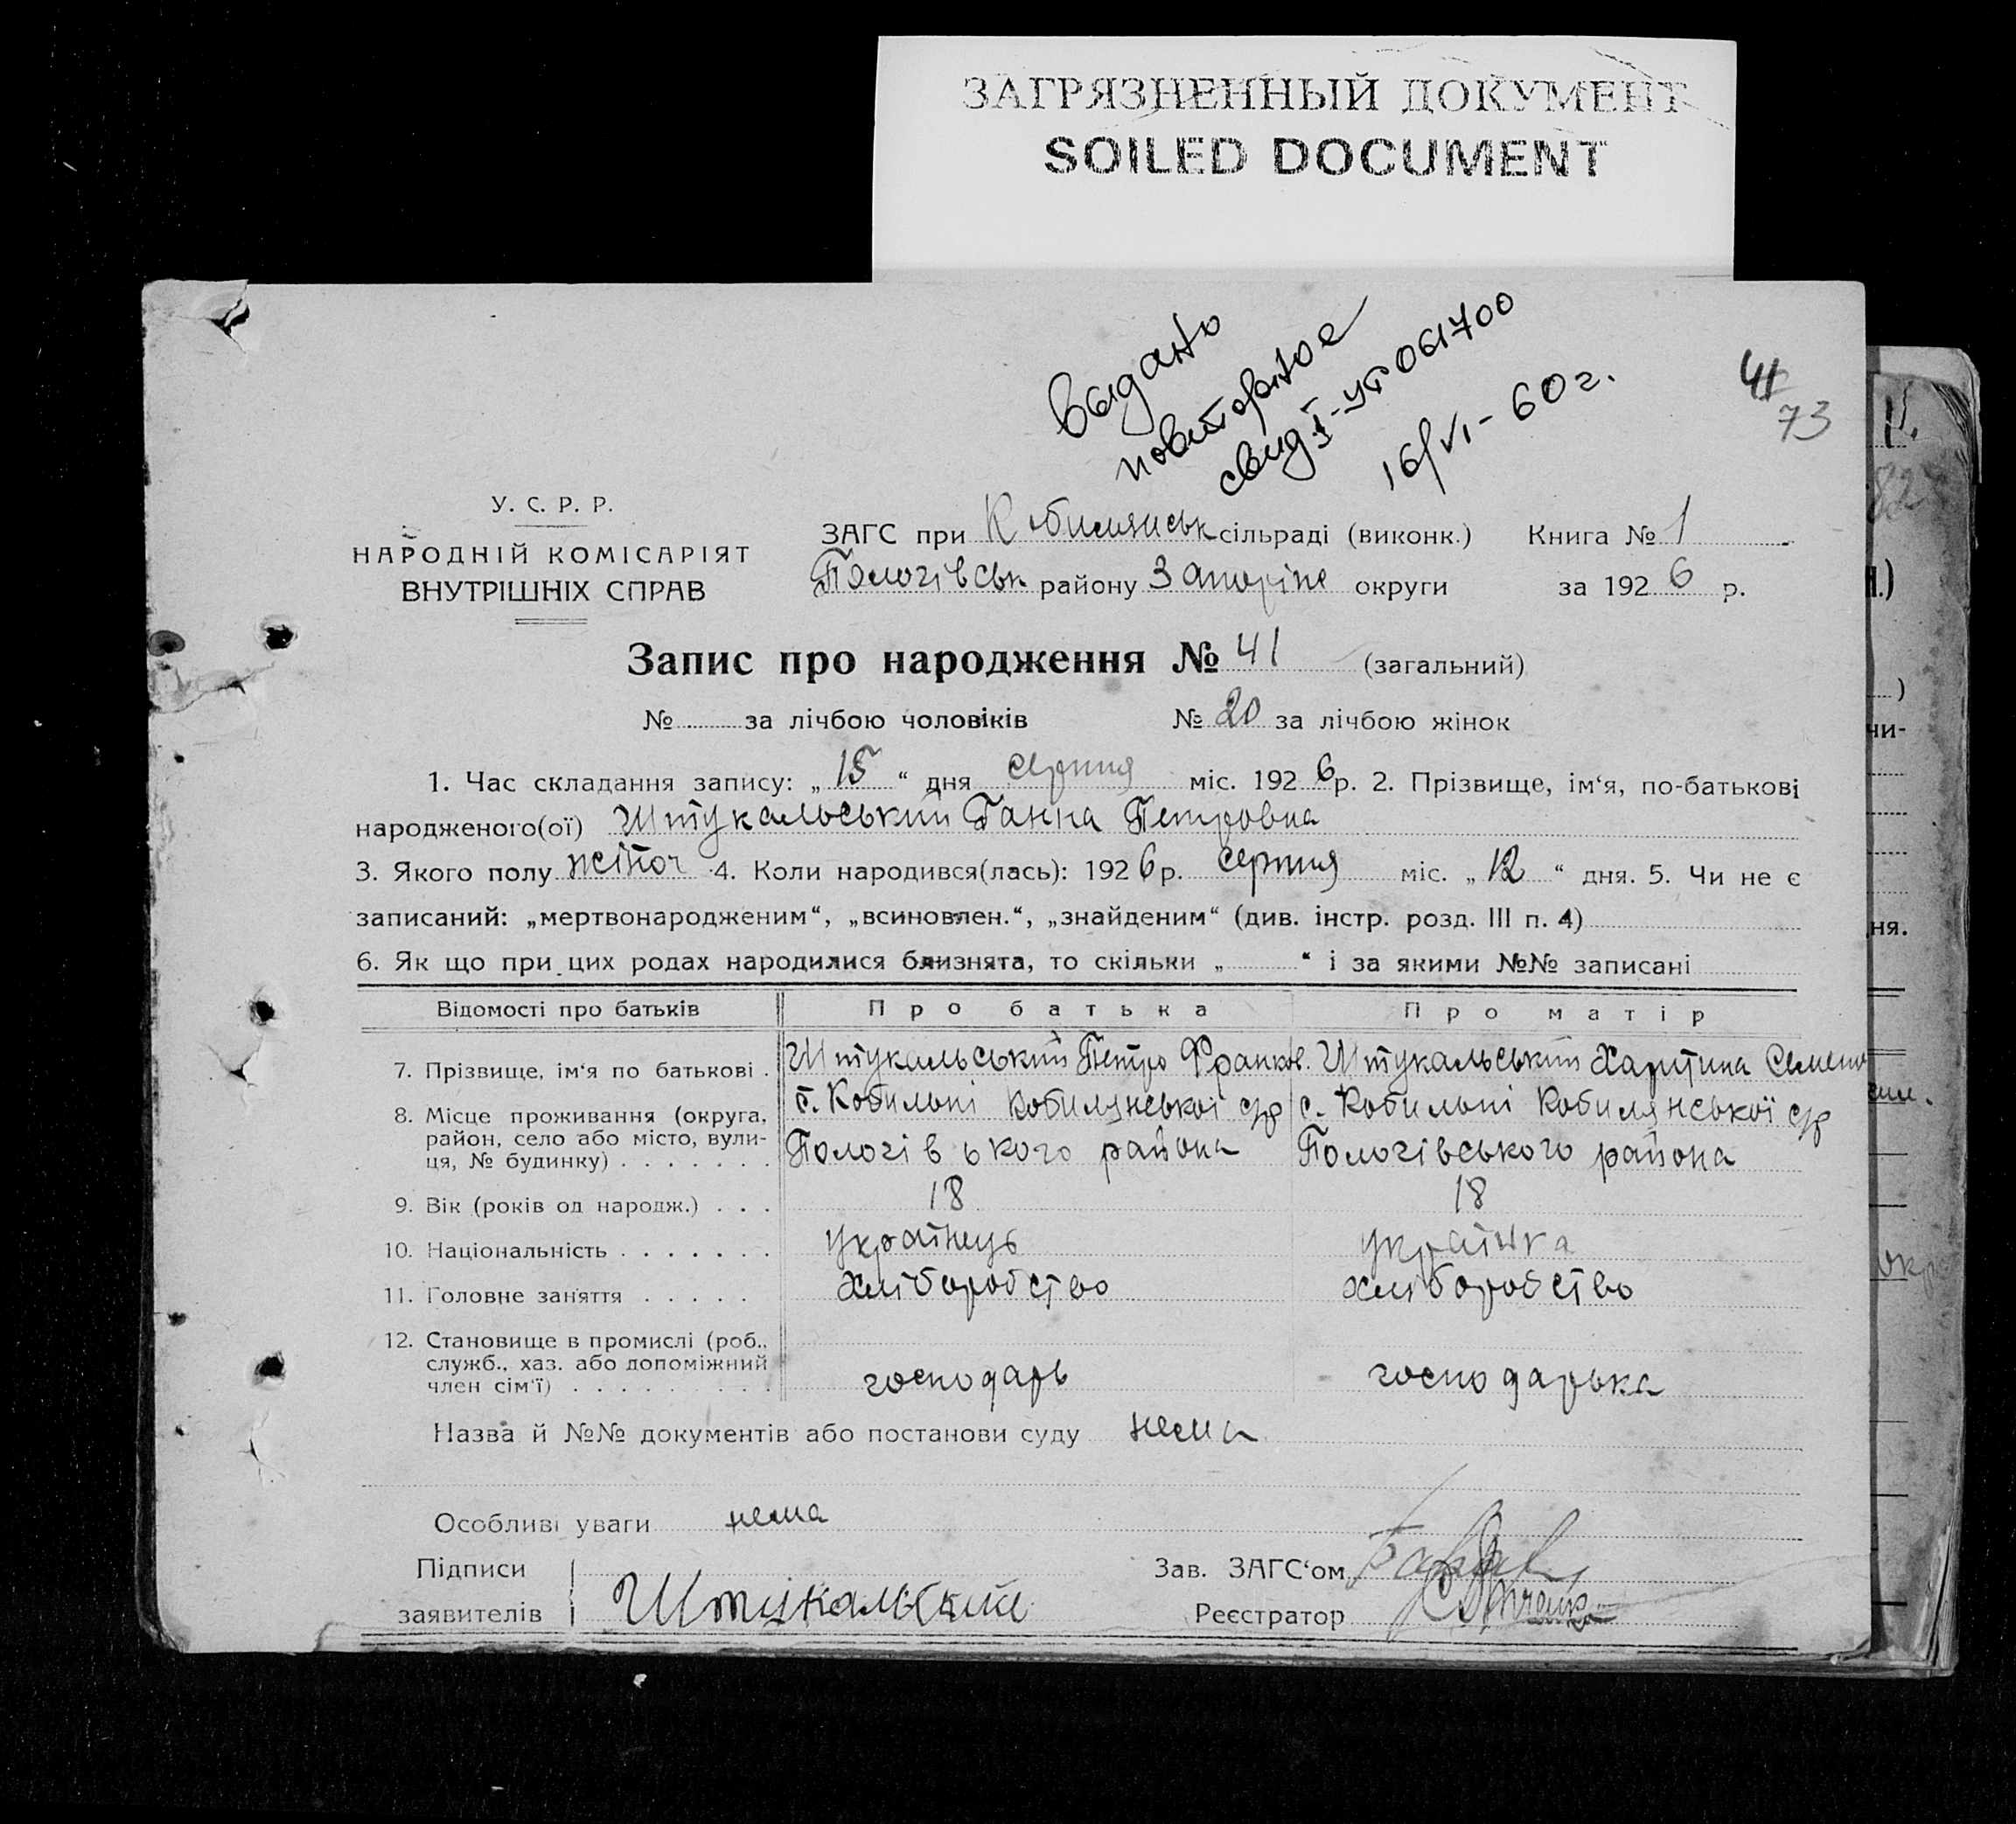 ЗАГРЯЗНЕННЫЙ ДОКУМЕНТ
SOILED DOCUMENT
выдано
повторное
свид I-УТ 061700
16/VI - 60 г.
41
73
У. С. Р. Р.
НАРОДНІЙ КОМІСАРІЯТ
ВНУТРІШНІХ СПРАВ
ЗАГС при Кобилянськ сільраді (виконк.) Книга № 1
Пологівськ району Запоріж округи за 1926 р.
Запис про народження № 41 (загальний)
№ за лічбою чоловіків № 20 за лічбою жінок
1. Час складання запису: „15“ дня серпня міс. 1926 р. 2. Прізвище, ім‘я, по-батькові
народженого(ої) Штукальський Ганна Петровна
3. Якого полу жіноч 4. Коли народився(лась): 1926 р. серпня міс. „12“ дня. 5. Чи не є
записаний: „мертвонародженим“, „всиновлен.“, „знайденим“ (див. інстр. розд. III п. 4)
6. Як що при цих родах народилися близнята, то скільки „ “ і за якими №№ записані
Відомості про батьків Про батька Про матір
7. Прізвище, ім‘я по батькові . Штукальський Петро Франков. Штукальський Харитина Семено
8. Місце проживання (округа, с. Кобильні Кобилянської с/р с. Кобильні Кобилянської с/р
район, село або місто, вули- Пологівського района Пологівського района
ця, № будинку) . . . . . . .
9. Вік (років од народж.) . . . 18 18
10. Національність . . . . . . . українець українка
11. Головне заняття . . . . . хліборобство хліборобство
12. Становище в промислі (роб.,
служб., хаз. або допоміжний
член сім‘ї) . . . . . . . . . господарь господарька
Назва й №№ документів або постанови суду нема
Особливі уваги нема
Підписи Зав. ЗАГС‘ом
заявителів Штукальський Реєстратор